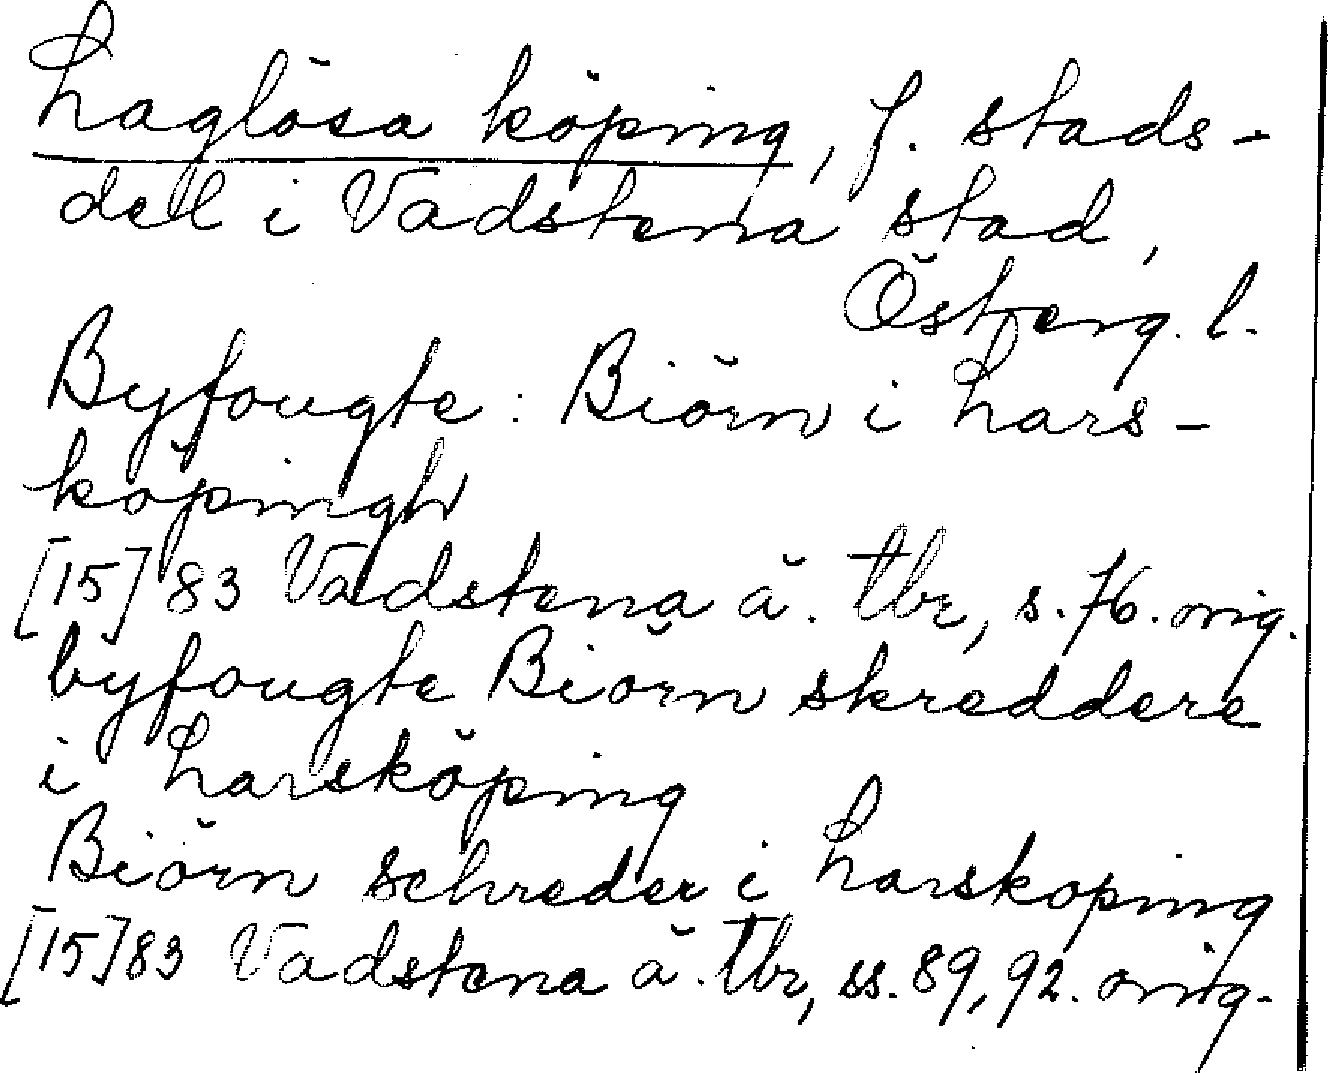 Laglösa köping, f. stads-
del i Vadstena stad,
Österg. l.
Byfougte: Biörn i Lars-
köpingh
[15]83 Vadstena ä. tbr, s. 76. orig.
byfougte Biörn skreddere
i Larsköping
Biörn schreder i Larskoping
[15]83 Vadstena ä. tbr, ss. 89, 92. orig.